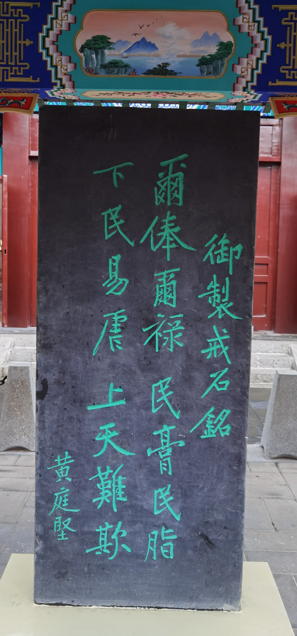 御製戒石銘
爾俸爾祿民膏民脂
下民易虐上天難欺
黃庭堅